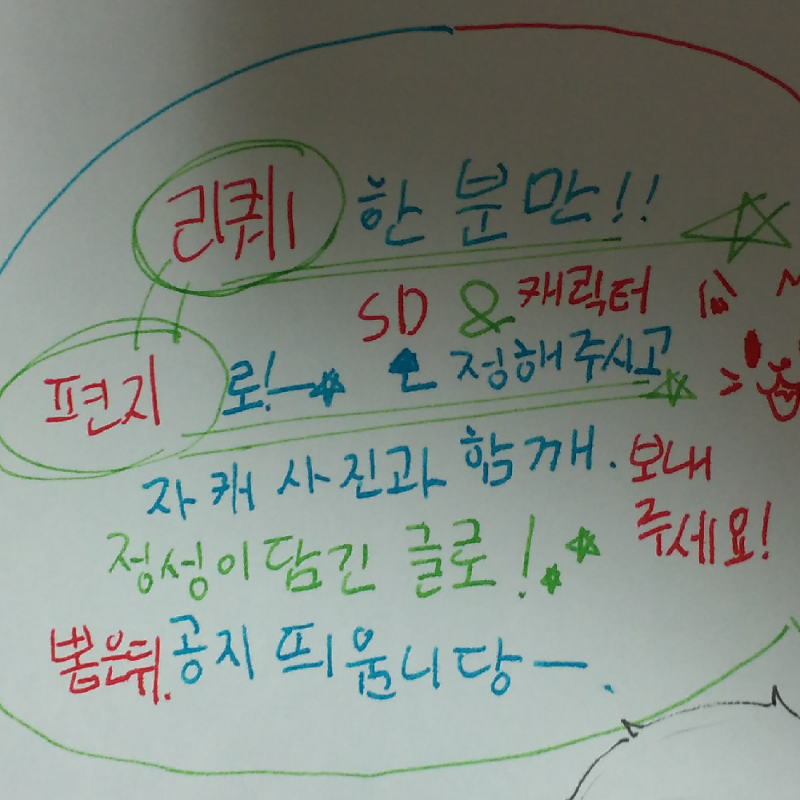 리퀘 한 분만!!
SD & 캐릭터
편지 로!ㅡ 은 정해주시고
자캐 사진과 함깨. 보내
정성이 담긴 글로! 주세요!
뽑은뒤. 공지 띄웁니당ㅡ.